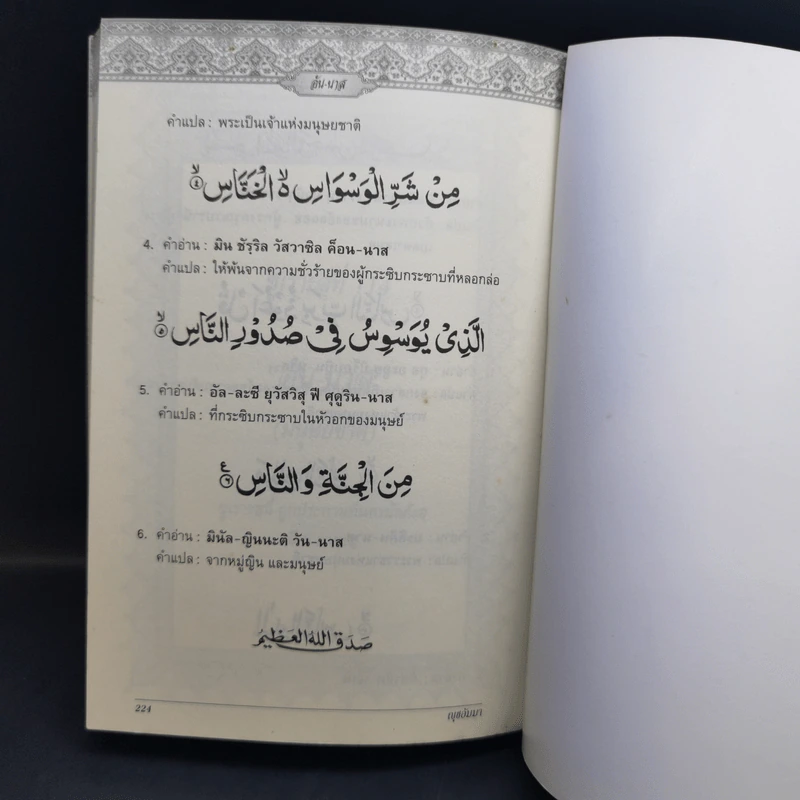 อัน-นาส
คำแปล : พระเป็นเจ้าแห่งมนุษยชาติ
مِنْ شَرِّ الْوَسْوَاسِ ۙ الْخَنَّاسِ ۙ﴿٤﴾
4. คำอ่าน : มิน ชัรฺริล วัสวาซิล ค็อน-นาส
คำแปล : ให้พ้นจากความชั่วร้ายของผู้กระซิบกระซาบที่หลอกล่อ
الَّذِيْ يُوَسْوِسُ فِيْ صُدُوْرِ النَّاسِ ۙ﴿٥﴾
5. คำอ่าน : อัล-ละซี ยุวัสวิสุ ฟี ศุดูริน-นาส
คำแปล : ที่กระซิบกระซาบในหัวอกของมนุษย์
مِنَ الْجِنَّةِ وَالنَّاسِ ﴿٦﴾ ع
6. คำอ่าน : มินัล-ญินนะติ วัน-นาส
คำแปล : จากหมู่ญิน และมนุษย์
صَدَقَ اللهُ الْعَظِيْمُ
224
ญุซอัมมา